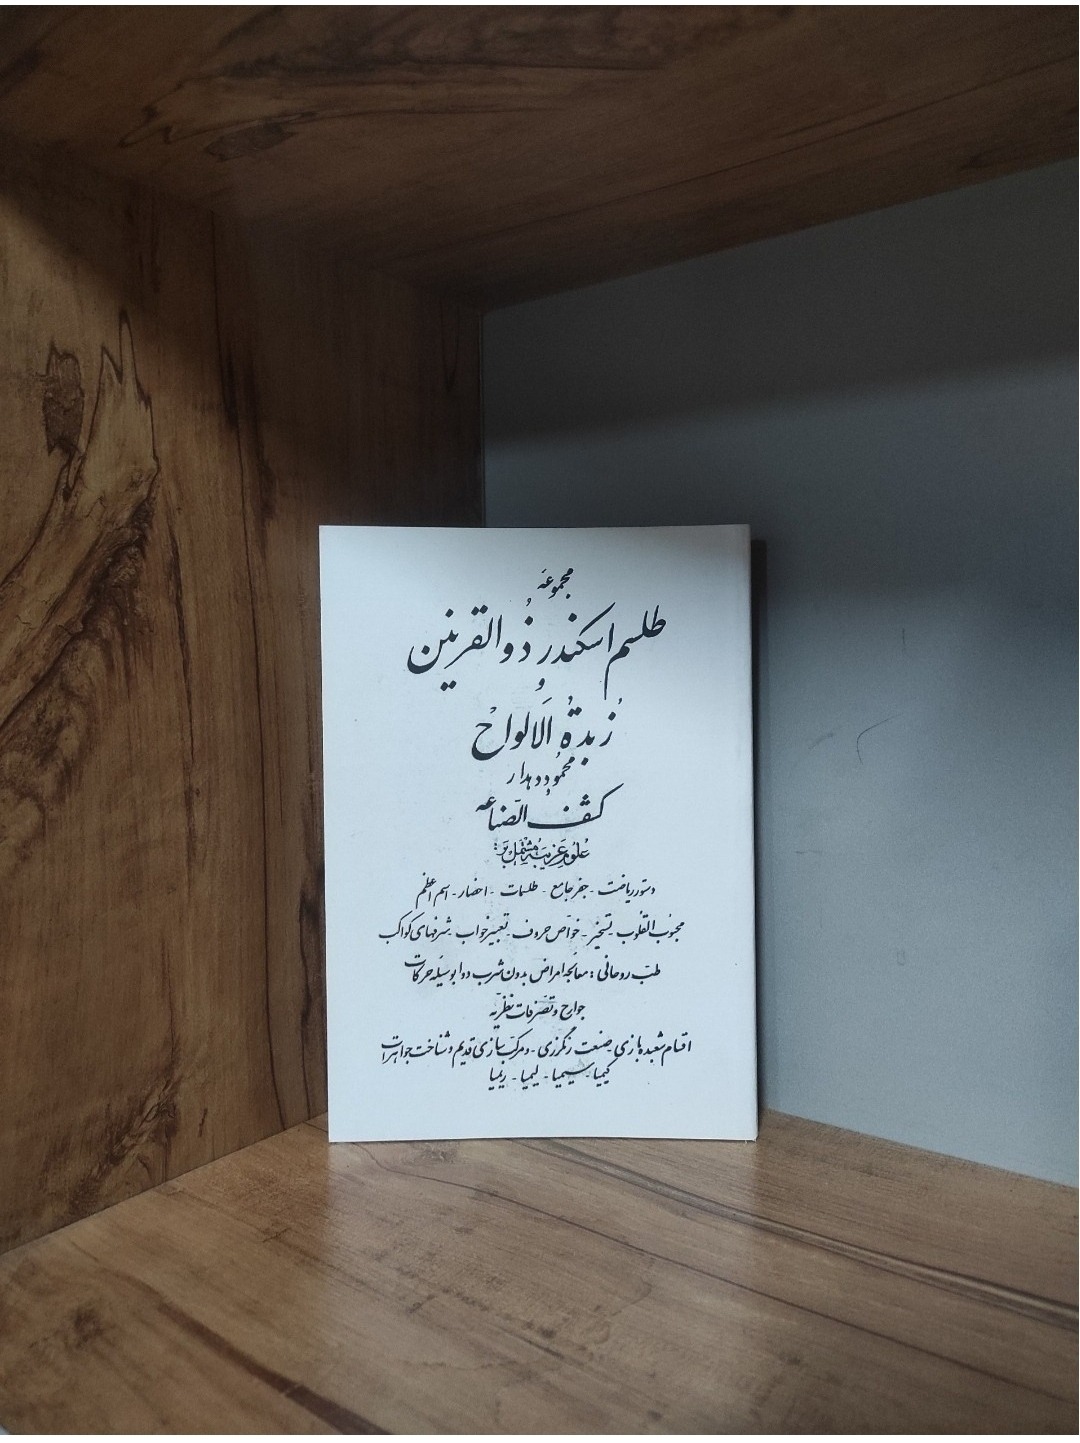 مجموعه
طلسم اسکندر ذوالقرنین
و
زُبدةُ الَالواح
محمود دهدار
کشف الصّناعه
علوم غریبه مشتمل بر:
دستور ریاضت - جفر جامع - طلسمات - احضار - اسم اعظم
محبوب القلوب - تسخیر - خواص حروف - تعبیر خواب - شرفهای کواکب
طب روحانی: معالجه امراض بدون شرب دوا بوسیله حرکات
جوارح و تصرفات نظریه
اقسام شعبده بازی - صنعت رنگرزی - و مرکب سازی قدیم و شناخت جواهرات
کیمیا - سیمیا - لیمیا - ریمیا